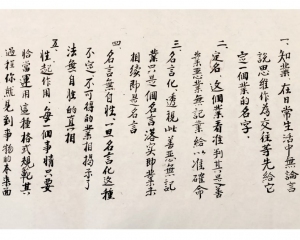 一、知業，在日常生活中無論言
說思維作為交往等先給它
定一個業的名字。
二、定名，這個業看准判其是善
業惡業無記業給以准確命
三、名言化透視此善惡無記
業只是個名言落實即業未
相續即是名言
四、名言無自性，一旦名言化這種
不定不可得的業相揭示了
法無自性的真相
五、性起作用，每個事情只要
恰當運用這種格式規範其
過程你就見到事物的本來面